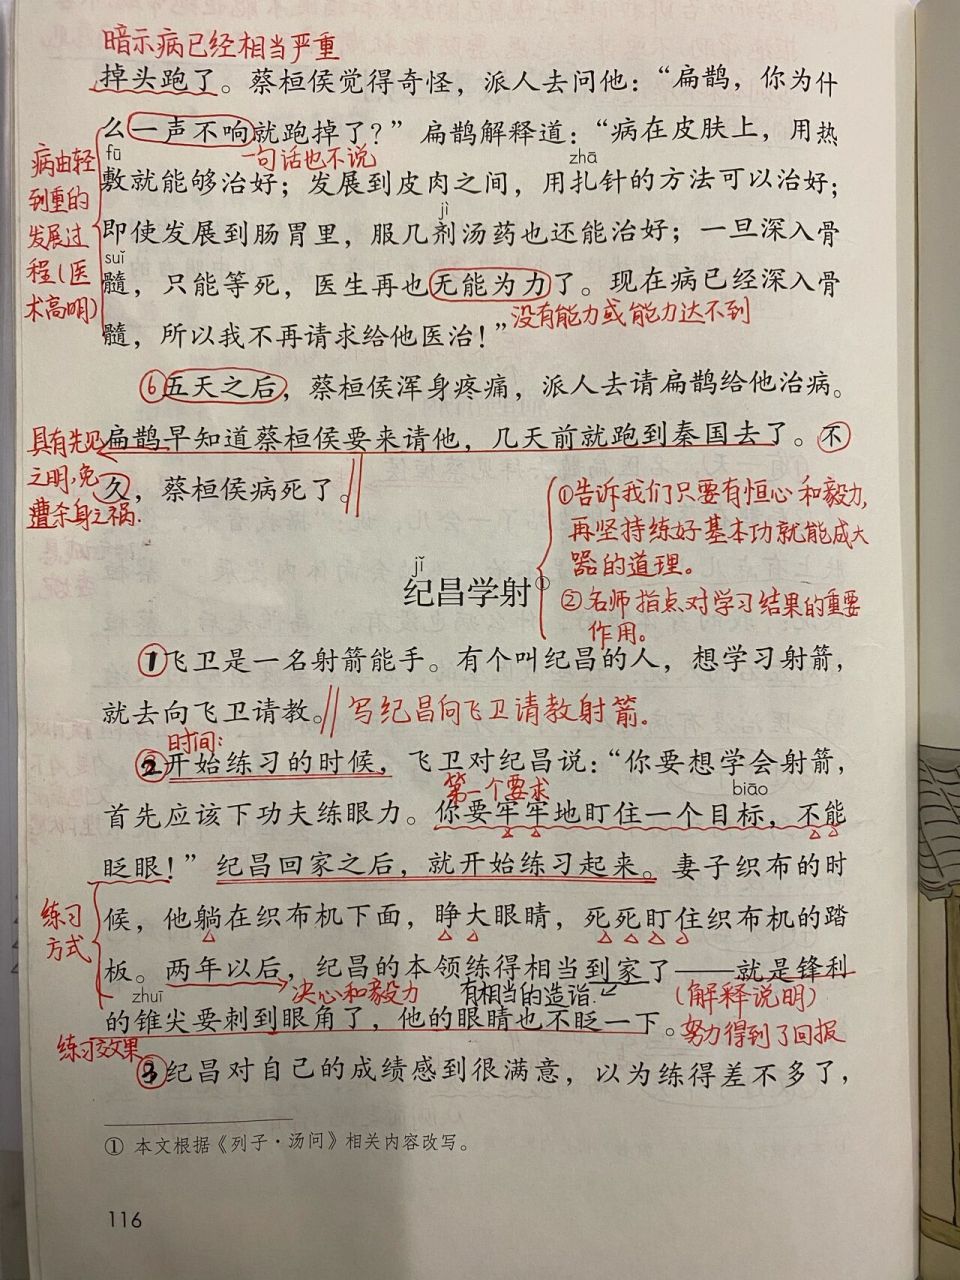 暗示病已经相当严重
掉头跑了。蔡桓侯觉得奇怪，派人去问他：“扁鹊，你为什
么一声不响就跑掉了？”扁鹊解释道：“病在皮肤上，用热
一句话也不说
fū
zhā
敷就能够治好；发展到皮肉之间，用扎针的方法可以治好；
jì
即使发展到肠胃里，服几剂汤药也还能治好；一旦深入骨
suǐ
髓，只能等死，医生再也无能为力了。现在病已经深入骨
没有能力或能力达不到
髓，所以我不再请求给他医治！”
病由轻
到重的
发展过
程(医
术高明)
⑥五天之后，蔡桓侯浑身疼痛，派人去请扁鹊给他治病。
扁鹊早知道蔡桓侯要来请他，几天前就跑到秦国去了。不
久，蔡桓侯病死了。
具有先见
之明,免
遭杀身之祸.
jǐ
纪昌学射①
①告诉我们只要有恒心和毅力,
再坚持练好基本功就能成大
器的道理。
②名师指点对学习结果的重要
作用。
①飞卫是一名射箭能手。有个叫纪昌的人，想学习射箭，
就去向飞卫请教。写纪昌向飞卫请教射箭.
时间:
②开始练习的时候，飞卫对纪昌说：“你要想学会射箭，
第一个要求
biāo
首先应该下功夫练眼力。你要牢牢地盯住一个目标，不能
眨眼！”纪昌回家之后，就开始练习起来。妻子织布的时
候，他躺在织布机下面，睁大眼睛，死死盯住织布机的踏
练习
方式
板。两年以后，纪昌的本领练得相当到家了——就是锋利
决心和毅力
有相当的造诣.
(解释说明)
zhuī
的锥尖要刺到眼角了，他的眼睛也不眨一下。
努力得到了回报
练习效果
③纪昌对自己的成绩感到很满意，以为练得差不多了，
① 本文根据《列子·汤问》相关内容改写。
116